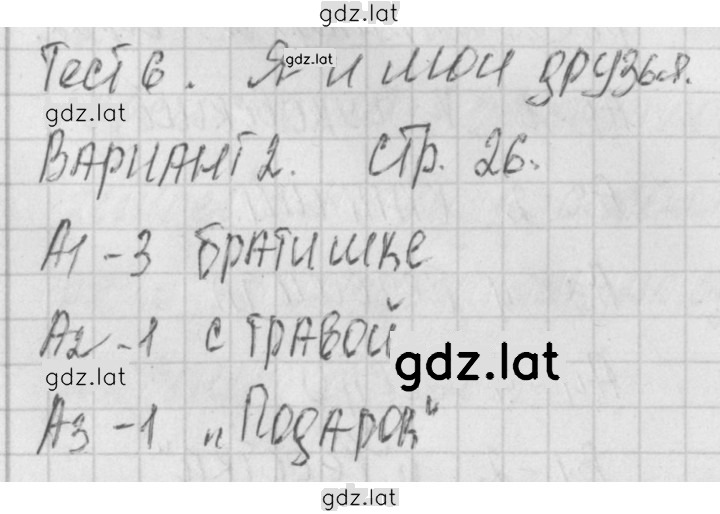 gdz.lat
Тест 6. Я и мои друзья.
gdz.lat
gdz.lat
Вариант 2. стр. 26.
А1 - 3 братишке
А2 - 1 с травой
gdz.lat
gdz.lat
А3 - 1 „Подарок"
gdz.lat